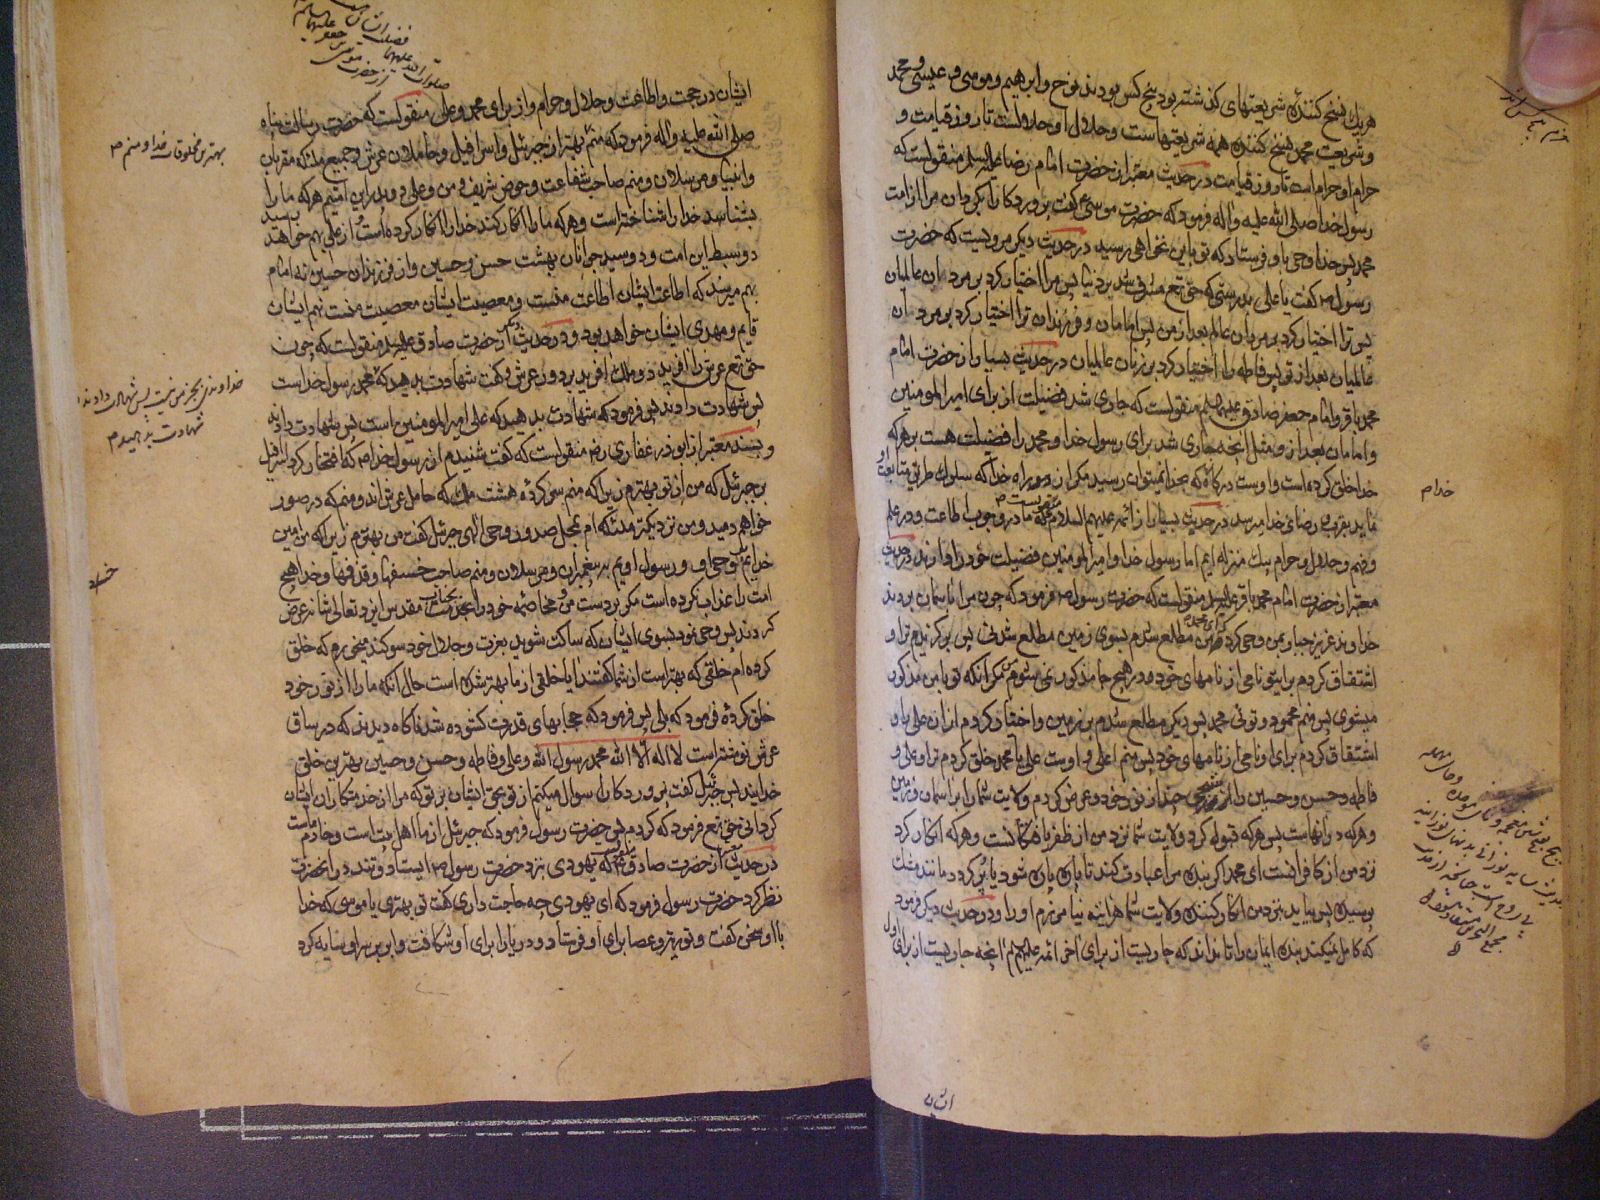 هریک نسخ کنندهٔ شریعتهای گذشته بود پنج کس بودند نوح و ابرهیم و موسی و عیسی و محمد
و شریعت محمد نسخ کننده همه شریعتهاست و حلال او حلالست تا روز قیامت و
حرام او حرام است تا روز قیامت در حدیث معتبر از حضرت امام رضا علیه السلام منقولست که
رسول خدا صلی الله علیه و آله فرمود که حضرت موسی گفت پروردکارا بکردان مرا از امت
محمد پس خدا وحی باو فرستاد که تو بآن نخواهی رسید در حدیث دیکر مرویست که حضرت
رسول ص گفت یا علی بدرستی که حق تع مشرف شد بر دنیا پس مرا اختیار کرد بر مردان عالمیان
پس ترا اختیار کرد بر مردان عالم بعد از من پس امامان و فرزندان ترا اختیار کرد بر مردان
عالمیان بعد از تو پس فاطمه را اختیار کرد بر زنان عالمیان در حدیث بسیار از حضرت امام
محمد باقر و امام جعفر صادق علیهما السلم منقولست که جاری شد فضیلت از برای امیر المومنین
و امامان بعد از و مثل آنچه جاری شد برای رسول خدا و محمد را فضیلت هست بر هرکه
خدا خلق کرده است و اوست درکاه که بخدا نمیتوان رسید مکر از و و راه خدا که سلوک طریق متابعت او
نماید بقرب و رضای خدا میرسد در حدیث بسیار از ائمه علیهم السلام منقولست که ما در وجوب اطاعت و در علم
و فهم و حلال و حرام بیک منزله ایم اما رسول خدا و امیر المومنین فضیلت خود را دارند در حدیث
معتبر از حضرت امام محمد باقر علیه السلم منقولست که حضرت رسول ص فرمود که چون مرا بآسمان بردند
خداوند عزیز جبار بمن وحی کرد که ای محمد من مطلع شدم بسوی زمین مطلع شدنی پس برکزیدم ترا و
اشتقاق کردم برای تو نامی از نامهای خود و در هیچ جا مذکور نمی شوم مکر آنکه تو با من مذکور
میشوی پس منم محمود و توئی محمد پس دیکر مطلع شدم بر زمین و اختیار کردم از ان علی را و
اشتقاق کردم برای او نامی از نامهای خود پس منم اعلی و اوست علی یا محمد خلق کردم ترا و علی و
فاطمه و حسن و حسین را از شبحی چند از نور خود و عرض کردم ولایت شما را بر آسمان و زمین
و هرکه در آنهاست پس هرکه قبول کرد ولایت شما نزد من از ظفر یافتکانست و هرکه انکار کرد
نزد من از کافرانست ای محمد اکر بنده مرا عبادت کند تا پاره پاره شود یا بکردد مانند مشک
پوسیده پس بیاید بنزد من انکار کننده ولایت شما هراینه نیامرزم او را و در حدیث دیکر فرمود
که کامل نمیکند بنده ایمان را تا نداند که جاریست از برای آخر ائمه علیهم م آنچه جاریست از برای اول
خدام
ایشان
ایشان در حجت و اطاعت و حلال و حرام و از برای محمد و علی منقولست که حضرت رسالت پناه
صلی الله علیه و آله فرمود که منم بهتر از جبرئیل و اسرافیل و حاملان عرش و جمیع ملئکه مقربان
و انبیا و مرسلان و منم صاحب شفاعت و حوض شریف و من و علی دو پدر این امتیم هرکه ما را
بشناسد خدا را شناخته است و هرکه ما را انکار کند خدا را انکار کرده است و از علی بهم خواهد رسید
دو سبط این امت و دو سید جوانان بهشت حسن و حسین و از فرزندان حسین نه امام
بهم میرسد که اطاعت ایشان اطاعت منست و معصیت ایشان معصیت منست نهم ایشان
قایم و مهدی ایشان خواهد بود و در حدیث دیکر از حضرت صادق علیه السلم منقولست که چون
حق تع عرش را آفرید دو ملک آفرید بر دور عرش و گفت شهادت بدهید که محمد رسول خداست
پس شهادت دادند پس فرمود که شهادت بدهید که علی امیر المومنین است پس شهادت دادند
و بسند معتبر از ابوذر غفاری رض منقولست که گفت شنیدم از رسول خدا ص که افتخار کرد اسرافیل
بر جبرئیل که من از تو بهترم زیرا که منم سرکرده هشت ملک که حامل عرش اند و منم که در صور
خواهم دمید و من نزدیکتر ملئکه ام بمحل صدور وحی الهی جبرئیل گفت من بهترم زیرا که من امین
خدایم بر وحی او و رسول اویم به پیغمبران و مرسلان و منم صاحب خسفها و قذفها و خدا هیچ
امت را عذاب نکرده است مکر بر دست من و مخاصمه خود را بجناب مقدس ایزد تعالی شانه عرض
کردند پس وحی نمود بسوی ایشان که ساکت شوید بعزت و جلال خود سوکند میخورم که خلق
کرده ام خلقی که بهتر است از شما گفتند آیا خلقی از ما بهتر شده است حال آنکه ما را از نور خود
خلق کردهٔ فرمود که بلی پس فرمود که حجابهای قدرت کشوده شد ناکاه دیدند که در ساق
عرش نوشته است لا اله الا الله محمد رسول الله و علی و فاطمه و حسن و حسین بهترین خلق
خدایند پس جبرئیل گفت پروردکارا سوال میکنم از تو بحق ایشان بر تو که مرا از خدمتکاران ایشان
کردانی حق تع فرمود که کردم پس حضرت رسول فرمود که جبرئیل از ما اهل بیت است و خادم ماست
در حدیث از حضرت صادق منقولست که یهودی بنزد حضرت رسول ص ایستاد و تند در آنحضرت
نظر کرد حضرت رسول فرمود که ای یهودی چه حاجت داری گفت تو بهتری یا موسی که خدا
با او سخن گفت و توریة و عصا برای او فرستاد و دریا را برای او شکافت و ابر بر سر او سایه کرد
بهترین مخلوقات خدا و منم ص
خداوندی بجز من نیست پس شهادت دادند
شهادت بدهید م